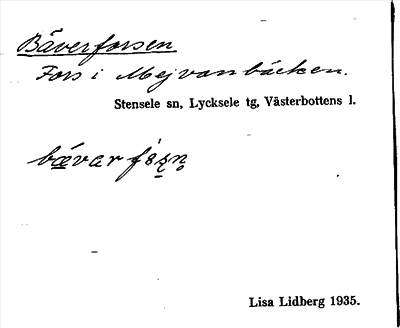 Bäverforsen
Fors i Mejvanbäcken.
Stensele sn, Lycksele tg, Västerbottens l.
Lisa Lidberg 1935.